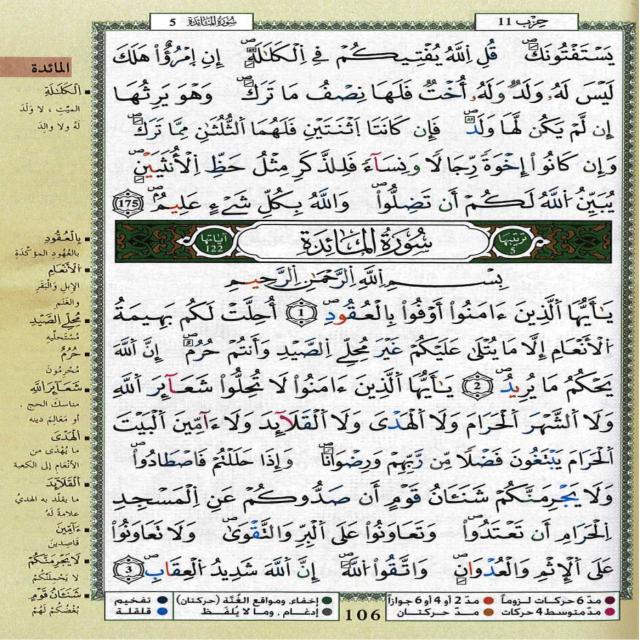 حِزْب 11
سُورَةُ المَائِدَة 5
يَسْتَفْتُونَكَ قُلِ اِ۬للَّهُ يُفْتِيكُمْ فِے اِ۬لْكَلَٰلَةِ إِنِ اِ۪مْرُؤٌاْ هَلَكَ
لَيْسَ لَهُۥ وَلَدٌ وَلَهُۥٓ أُخْتٌ فَلَهَا نِصْفُ مَا تَرَكَ وَهْوَ يَرِثُهَا
إِن لَّمْ يَكُن لَّهَا وَلَدٌ فَإِن كَانَتَا اَ۪ثْنَتَيْنِ فَلَهُمَا اَ۬لثُّلُثَٰنِ مِمَّا تَرَكَ
وَإِن كَانُوٓاْ إِخْوَةً رِّجَالًا وَنِسَآءً فَلِلذَّكَرِ مِثْلُ حَظِّ اِ۬لْأُنثَيَيْنِ
يُبَيِّنُ اُ۬للَّهُ لَكُمْ أَن تَضِلُّواْ وَاللَّهُ بِكُلِّ شَےْءٍ عَلِيمٌ 175
تَرتيبُهَا 5
سُورَةُ المَائِدَة
آيَاتُهَا 122
بِسْمِ اللَّهِ الرَّحْمَٰنِ الرَّحِيمِ
يَٰٓأَيُّهَا اَ۬لذِينَ ءَامَنُوٓاْ أَوْفُواْ بِالْعُقُودِ 1 أُحِلَّتْ لَكُم بَهِيمَةُ
اُ۬لْأَنْعَٰمِ إِلَّا مَا يُتْلَىٰ عَلَيْكُمْ غَيْرَ مُحِلِّے اِ۬لصَّيْدِ وَأَنتُمْ حُرُمٌ إِنَّ اَ۬للَّهَ
يَحْكُمُ مَا يُرِيدُ 2 يَٰٓأَيُّهَا اَ۬لذِينَ ءَامَنُواْ لَا تُحِلُّواْ شَعَٰٓئِرَ اَ۬للَّهِ
وَلَا اَ۬لشَّهْرَ اَ۬لْحَرَامَ وَلَا اَ۬لْهَدْىَ وَلَا اَ۬لْقَلَٰٓئِدَ وَلَآ ءَآمِّينَ اَ۬لْبَيْتَ
اَ۬لْحَرَامَ يَبْتَغُونَ فَضْلًا مِّن رَّبِّهِمْ وَرِضْوَٰنًا وَإِذَا حَلَلْتُمْ فَاصْطَادُواْ
وَلَا يَجْرِمَنَّكُمْ شَنَـَٔانُ قَوْمٍ أَن صَدُّوكُمْ عَنِ اِ۬لْمَسْجِدِ
اِ۬لْحَرَامِ أَن تَعْتَدُواْ وَتَعَاوَنُواْ عَلَى اَ۬لْبِرِّ وَالتَّقْوَىٰ وَلَا تَعَاوَنُواْ
عَلَى اَ۬لْإِثْمِ وَالْعُدْوَٰنِ وَاتَّقُواْ اُ۬للَّهَ إِنَّ اَ۬للَّهَ شَدِيدُ اُ۬لْعِقَابِ 3
المائدة
الْكَلَٰلَةِ
الميّت ، لا وَلَدَ
لَهُ ولا والِدَ
بِالْعُقُودِ
بالعُهُودِ المؤكّدَةِ
الأَنْعَٰمِ
الإبلِ والْبَقَرِ
والغَنَمِ
مُحِلِّي الصَّيْدِ
مُسْتَحلِّيهِ
حُرُمٌ
مُحْرِمُونَ
شَعَٰٓئِرَ اللهِ
مناسكَ الحج .
أو مَعَالِمَ دينه
الْهَدْيَ
ما يُهْدَى من
الأنْعَامِ إلى الكعبة
الْقَلَٰٓئِدَ
ما يقلّد به الهديُ
علامةً لَهُ
ءَآمِّينَ
قاصِدينَ
لَا يَجْرِمَنَّكُمْ
لا يَحْمِلَنَّكُمْ
شَنَـَٔانُ قَوْمٍ
بُغْضُكُمْ لَهُمْ
مدّ 6 حركات لزوماً
مدّ 2 أو 4 أو 6 جوازاً
مدّ متوسط 4 حركات
مدّ حركتان
106
إخفاء، ومواقع الغُنّة (حركتان)
إدغام ، وما لا يُلفَظ
تفخيم
قلقلة